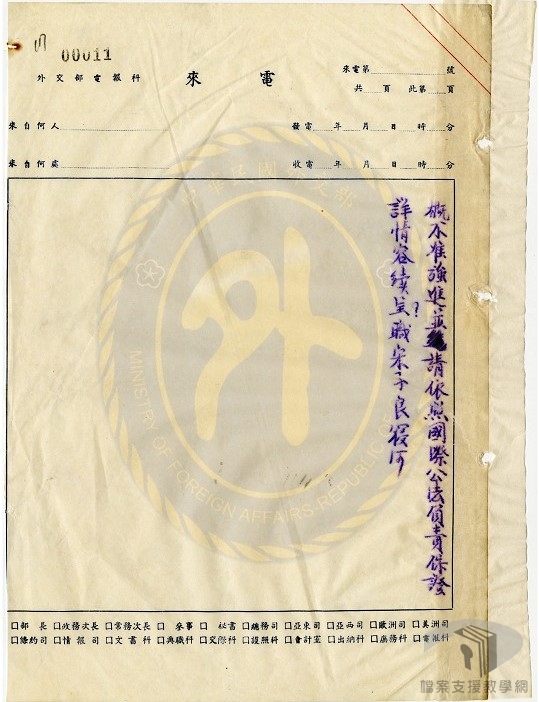 00011
外交部電報科
來電
來電第 號
共 頁 此第 頁
來自何人
發電 年 月 日 時 分
來自何處
收電 年 月 日 時 分
概不准強進並請依照國際公法負責保證
詳情容續呈?職宋子良寢
中華民國外交部
MINISTRY OF FOREIGN AFFAIRS REPUBLIC
□部長 □政務次長 □常務次長 □參事 □秘書 □總務司 □亞東司 □亞西司 □歐洲司 □美洲司
□條約司 □情報司 □文書科 □典職科 □交際科 □護照科 □會計室 □出納科 □庶務科 □電報科
檔案支援教學網